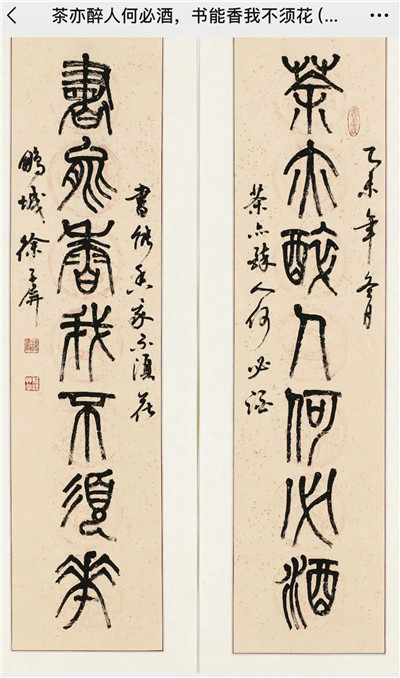 茶亦醉人何必酒，书能香我不须花 (...
茶亦醉人何必酒
乙未年冬月
茶亦醉人何必酒
書能香我不須花
書能香我不須花
鵬城徐子屏